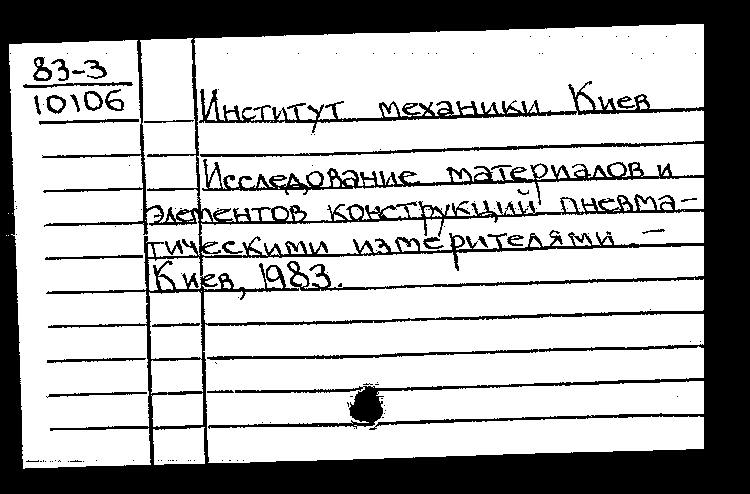 83-3
10106
Институт механики. Киев
Исследование материалов и
элементов конструкций пневма-
тическими измерителями. –
Киев, 1983.